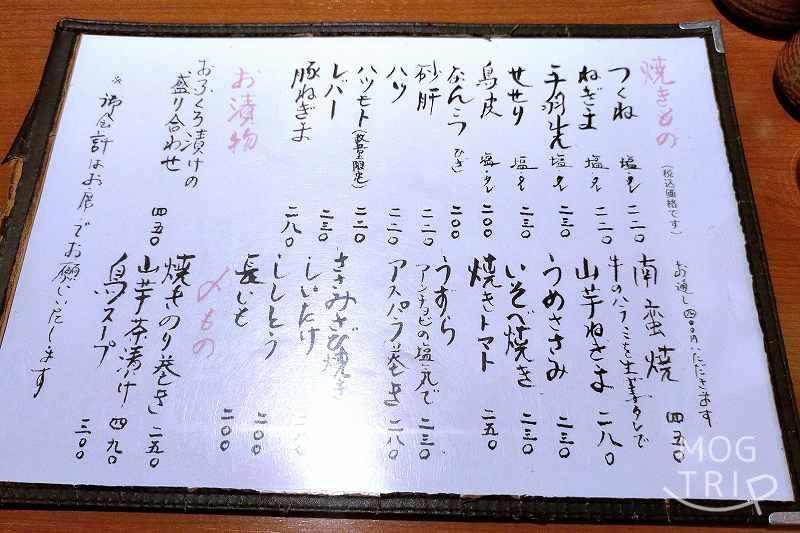 焼きもの
(税込価格です)
つくね 塩・タレ 二二〇
ねぎま 塩・タレ 二二〇
手羽先 塩・タレ 二三〇
せせり 塩・タレ 二三〇
鳥皮 塩・タレ 二〇〇
なんこつ ひざ 二〇〇
砂肝 二二〇
ハツ 二二〇
ハツモト(数量限定) 二二〇
レバー 二三〇
豚ねぎま 二八〇
お通し四〇〇円いただきます
南蛮焼 四五〇
牛のハラミを生姜タレで
山芋ねぎま 二八〇
うめささみ 二三〇
いそべ焼き 二三〇
焼きトマト 二五〇
うずら 二三〇
アンチョビの塩气で
アスパラ巻き 二八〇
ささみさび焼き
しいたけ
ししとう 二〇〇
長いも 二〇〇
お漬物
おふくろ漬けの
盛り合わせ 四五〇
〆もの
焼きのり巻き 二五〇
山芋茶漬け 四九〇
鳥スープ 三〇〇
※御会計はお席でお願いいたします
MOG
TRIP